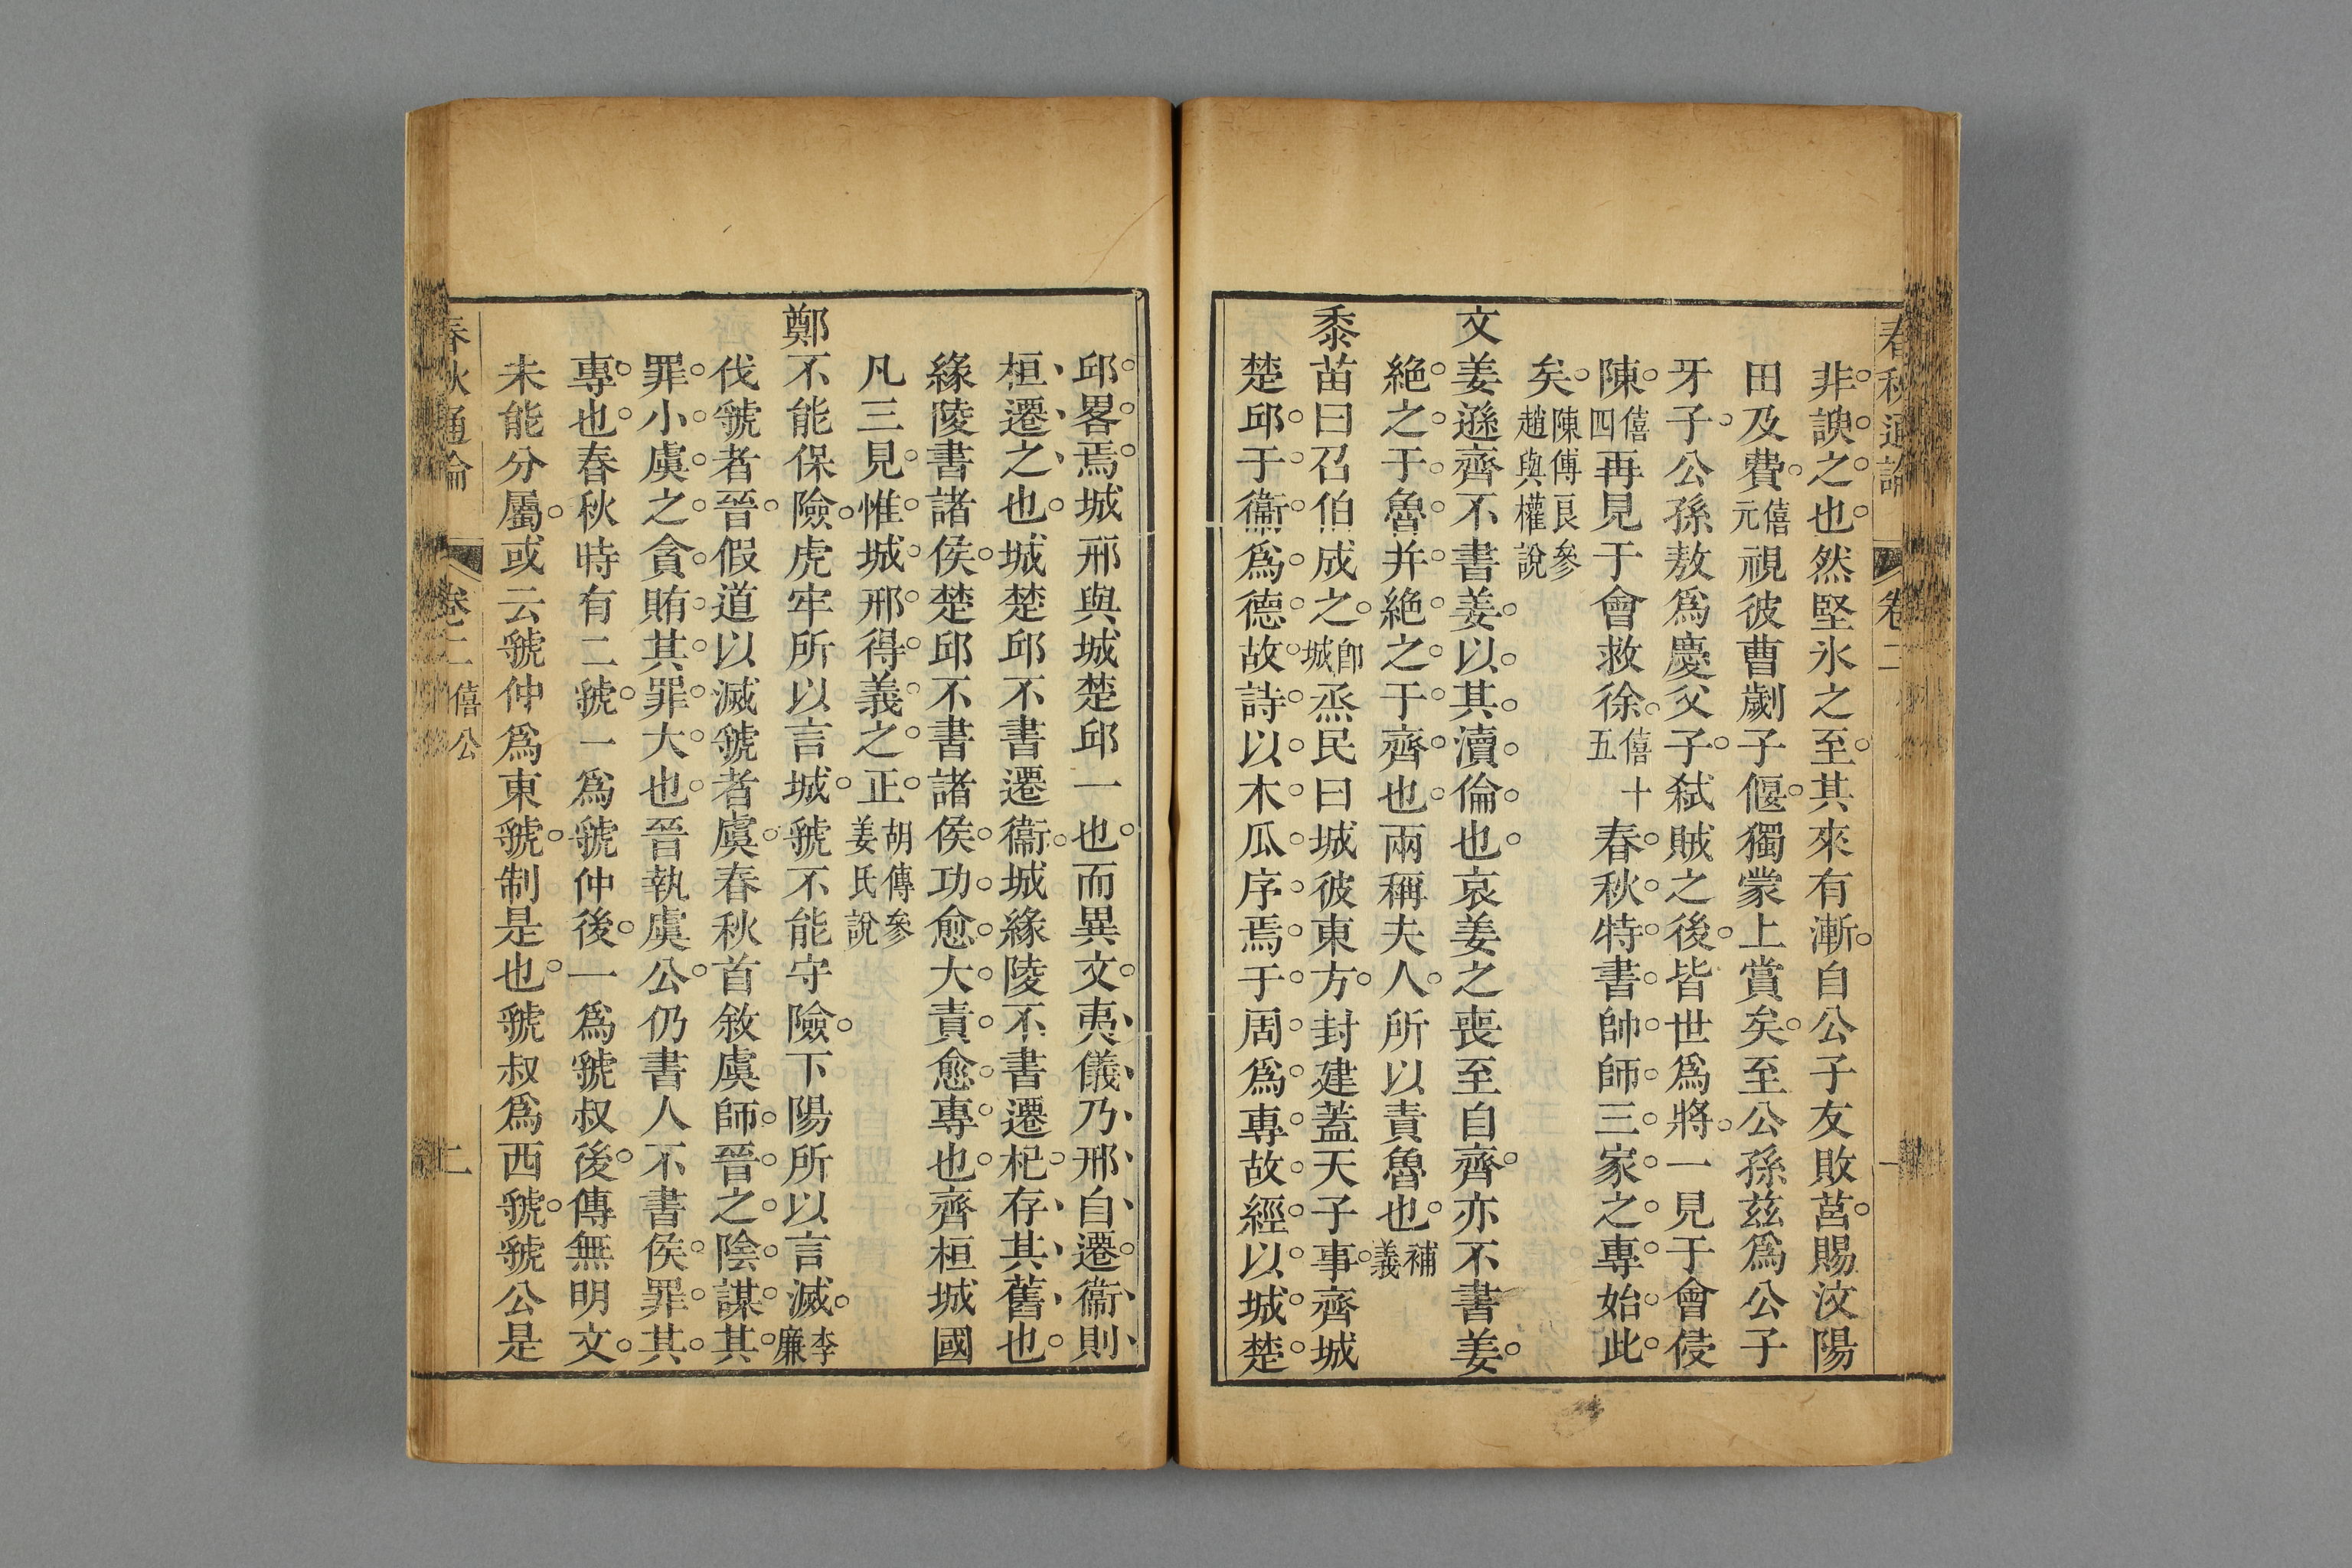 春秋通論 卷二 一
非諛之也然堅氷之至其來有漸自公子友敗莒賜汶陽
田及費僖元視彼曹劌子偃獨蒙上賞矣至公孫茲爲公子
牙子公孫敖爲慶父子弑賊之後皆世爲將一見于會侵
陳僖四再見于會救徐僖十五春秋特書帥師三家之專始此
矣陳傅良參趙與權說
文姜遜齊不書姜以其瀆倫也哀姜之喪至自齊亦不書姜
絶之于魯并絶之于齊也兩稱夫人所以責魯也補義
黍苗曰召伯成之卽城烝民曰城彼東方封建蓋天子事齊城
楚邱于衞爲德故詩以木瓜序焉于周爲專故經以城楚
邱畧焉城邢與城楚邱一也而異文夷儀乃邢自遷衞則
桓遷之也城楚邱不書遷衞城緣陵不書遷杞存其舊也
緣陵書諸侯楚邱不書諸侯功愈大責愈專也齊桓城國
凡三見惟城邢得義之正胡傳參姜氏說
鄭不能保險虎牢所以言城虢不能守險下陽所以言滅李廉
伐虢者晉假道以滅虢者虞春秋首敘虞師晉之陰謀其
罪小虞之貪賄其罪大也晉執虞公仍書人不書侯罪其
專也春秋時有二虢一爲虢仲後一爲虢叔後傳無明文
未能分屬或云虢仲爲東虢制是也虢叔爲西虢虢公是
春秋通論 卷二 僖公 二